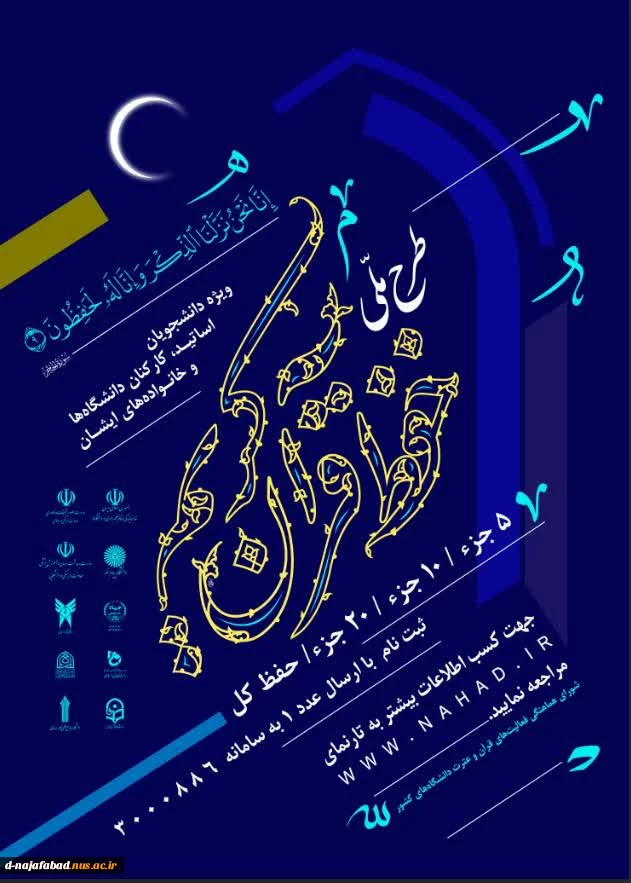 إِنَّا نَحْنُ نَزَّلْنَا ٱلذِّكْرَ وَإِنَّا لَهُۥ لَحَٰفِظُونَ ٩
طرح ملّی
حفظ قرآن کریم
ویژه دانشجویان
اساتید، کارکنان دانشگاه‌ها
و خانواده‌های ایشان
۵ جزء / ۱۰ جزء / ۲۰ جزء / حفظ کل
ثبت نام با ارسال عدد ۱ به سامانه ۳۰۰۰۸۸۶
جهت کسب اطلاعات بیشتر به تارنمای
WWW.NAHAD.IR
مراجعه نمایید.
شورای هماهنگی فعالیت‌های قرآن و عترت دانشگاه‌های کشور
d-najafabad.nus.ac.ir